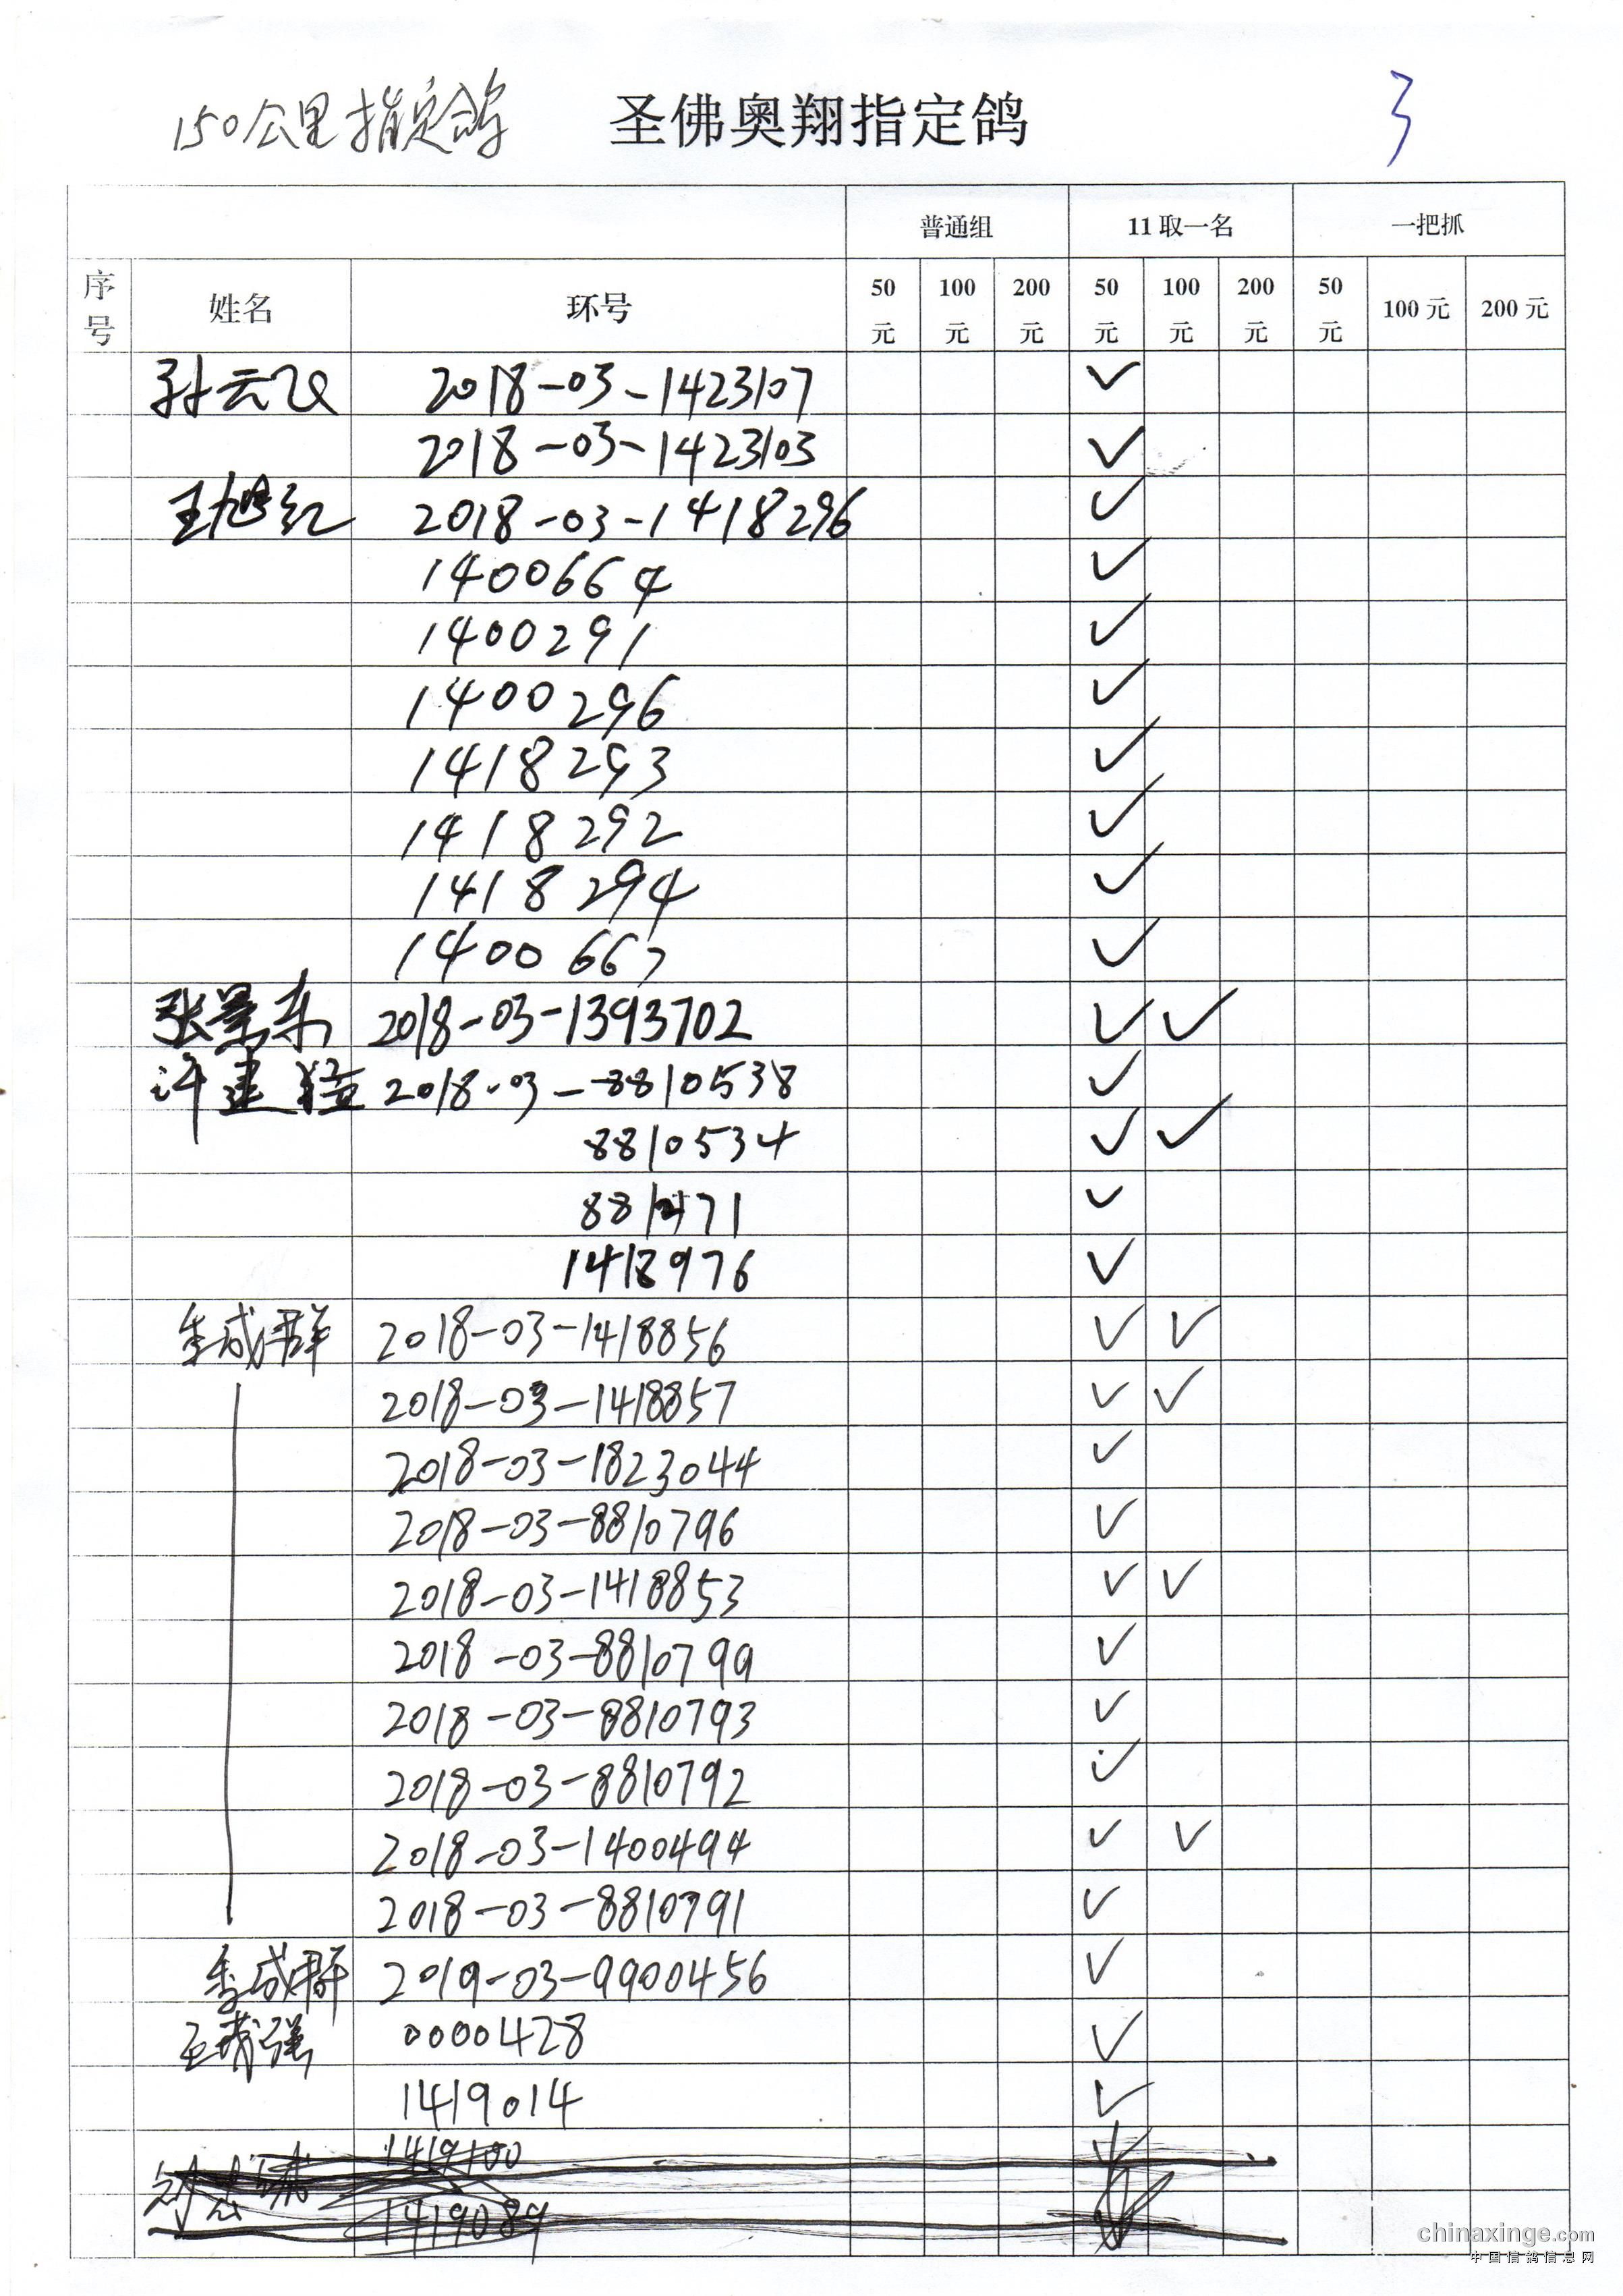 150公里指定鸽 圣佛奥翔指定鸽 3
普通组 11取一名 一把抓
序号 姓名 环号 50元 100元 200元 50元 100元 200元 50元 100元 200元
孙云飞 2018-03-1423107 ✓
2018-03-1423103 ✓
王旭红 2018-03-1418296 ✓
1400664 ✓
1400291 ✓
1400296 ✓
1418293 ✓
1418292 ✓
1418294 ✓
1400667 ✓
张景东 2018-03-1393702 ✓ ✓
许建 2018-03-8810538 ✓
8810534 ✓ ✓
✓
1418976 ✓
李成群 2018-03-1418856 ✓ ✓
2018-03-1418857 ✓ ✓
2018-03-1823044 ✓
2018-03-8810796 ✓
2018-03-1418853 ✓ ✓
2018-03-8810799 ✓
2018-03-8810793 ✓
2018-03-8810792 ✓
2018-03-1400494 ✓ ✓
2018-03-8810791 ✓
李成群 2019-03-9900456 ✓
王 强 0000428 ✓
1419014 ✓
1419100 ✓
1419089
chinaxinge.com
中国信鸽信息网